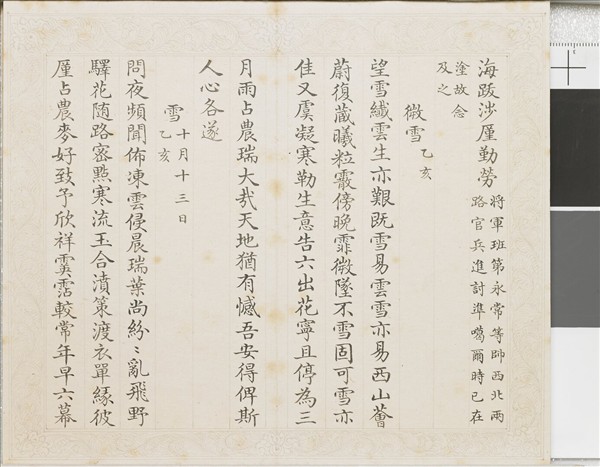 海跋涉厪勤勞
將軍班第永常等帥西北兩
路官兵進討準噶爾時已在
塗故念
及之
微雪
乙亥
望雪纎雲生亦艱既雪易雲雪亦易西山薈
蔚復蔵曦粒霰傍晚霏微墜不雪固可雪亦
佳又虞凝寒勒生意告六出花寧且停為三
月雨占農瑞大㢤天地猶有憾吾安得俾斯
人心各遂
雪
十月十三日
乙亥
問夜頻聞佈凍雲侵晨瑞葉尚紛〻亂飛野
驛花随路宻㸃寒流玉合濆策渡衣單緣彼
厪占農麥好致予欣祥霙霑較常年早六幕